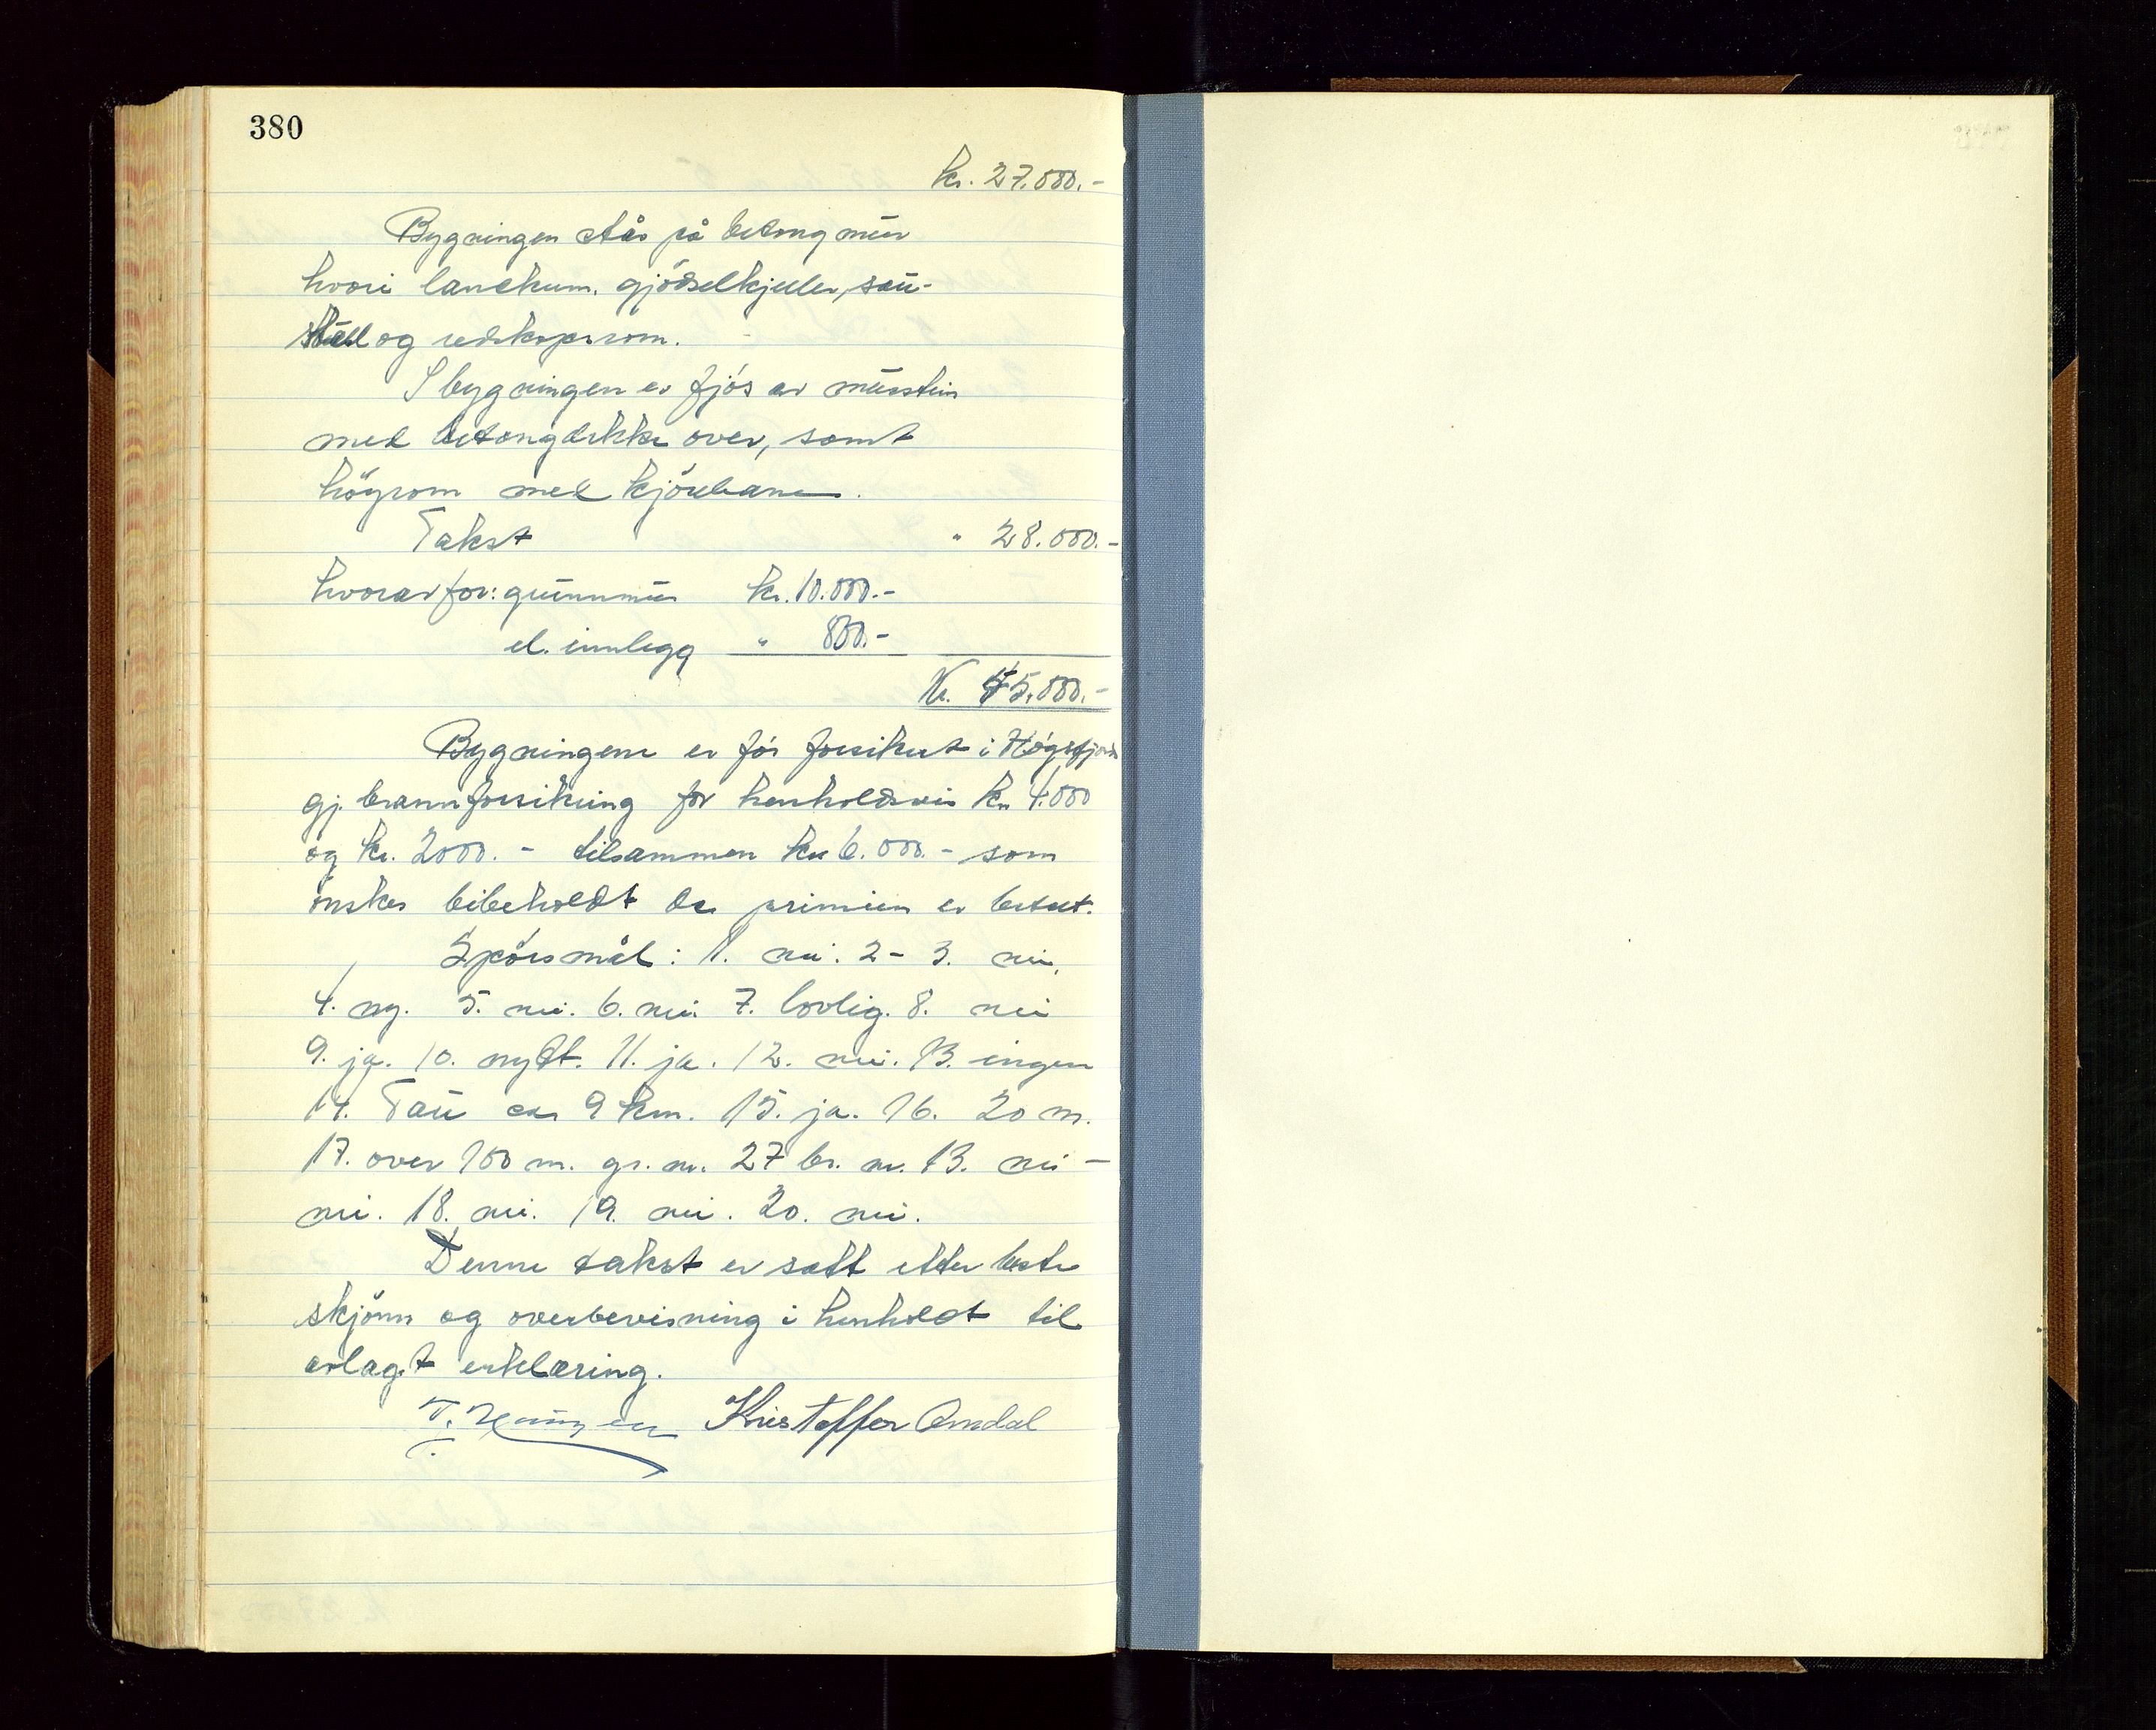 380
kr. 27.000.-
Bygningen står på betongmur
hvori landkum, gjödselkjeller, sau-
stall og redskapsrom.
I bygningen er fjös av murstein
med betongdekke over, samt
höyrom med kjörebane.
Takst " 28.000.-
hvorav for: grunnmur kr. 10.000.-
el. innlegg " 800.-
Kr. 55.000.-
Bygningene er för forsikret i Högsfjord
gj. brannforsikring for henholdsvis kr 4.000
og kr. 2000.- tilsammen kr 6.000.- som
önskes bibeholdt da premien er betalt.
Spörsmål: 1. nei. 2- 3. nei.
4. ny. 5. nei. 6. nei. 7. lovlig. 8. nei
9. ja. 10. nydt. 11. ja. 12. nei. 13. ingen
14. Tau ca 9 km. 15. ja. 16. 20 m.
17. over 100 m. gr. nr. 27 br. nr. 13. nei -
nei. 18. nei. 19. nei. 20. nei.
Denne takst er satt etter beste
skjönn og overbevisning i henholdt til
avlagt erklæring.
T. Kristoffer Amdal